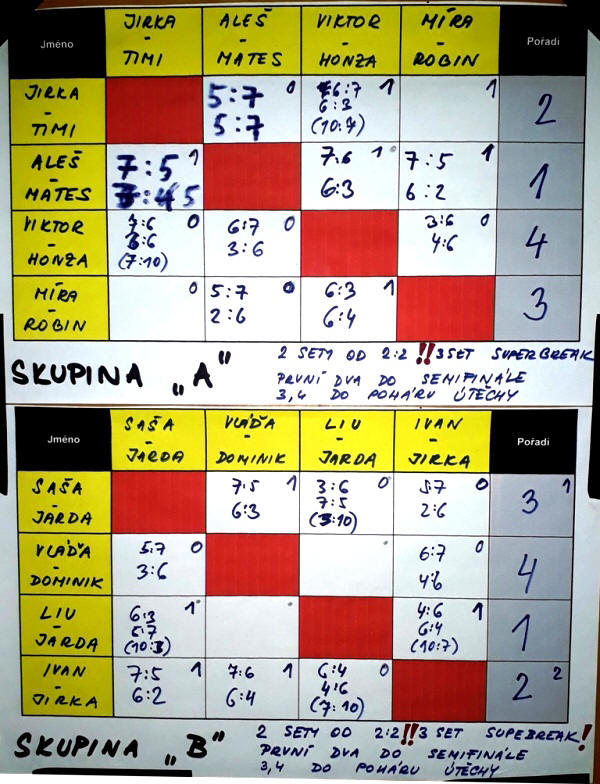 Jméno JIRKA - TIMI ALEŠ - MATES VIKTOR - HONZA MÍRA - ROBIN Pořadí
JIRKA - TIMI 5:7 5:7 0 6:7 6:3 (10:7) 1 1 2
ALEŠ - MATES 7:5 1 7:6 6:3 1 7:5 6:2 1 1
VIKTOR - HONZA 7:6 3:6 (7:10) 0 6:7 3:6 0 3:6 4:6 0 4
MÍRA - ROBIN 0 5:7 2:6 0 6:3 6:4 1 3
SKUPINA „A"
2 SETY OD 2:2 !! 3 SET SUPERBREAK
PRVNÍ DVA DO SEMIFINÁLE
3,4 DO POHÁRU ÚTĚCHY
Jméno SAŠA - JARDA VLÁĎA - DOMINIK LIU - JARDA IVAN - JIRKA Pořadí
SAŠA - JARDA 7:5 6:3 1 3:6 7:5 (3:10) 0 5:7 2:6 0 3 1
VLÁĎA - DOMINIK 5:7 3:6 0 6:7 4:6 0 4
LIU - JARDA 6:3 5:7 (10:3) 1 4:6 6:4 (10:7) 1 1
IVAN - JIRKA 7:5 6:2 1 7:6 6:4 1 6:4 4:6 (7:10) 0 2 2
SKUPINA „B"
2 SETY OD 2:2 !! 3 SET SUPEBREAK!
PRVNÍ DVA DO SEMIFINÁLE
3,4 DO POHÁRU ÚTĚCHY